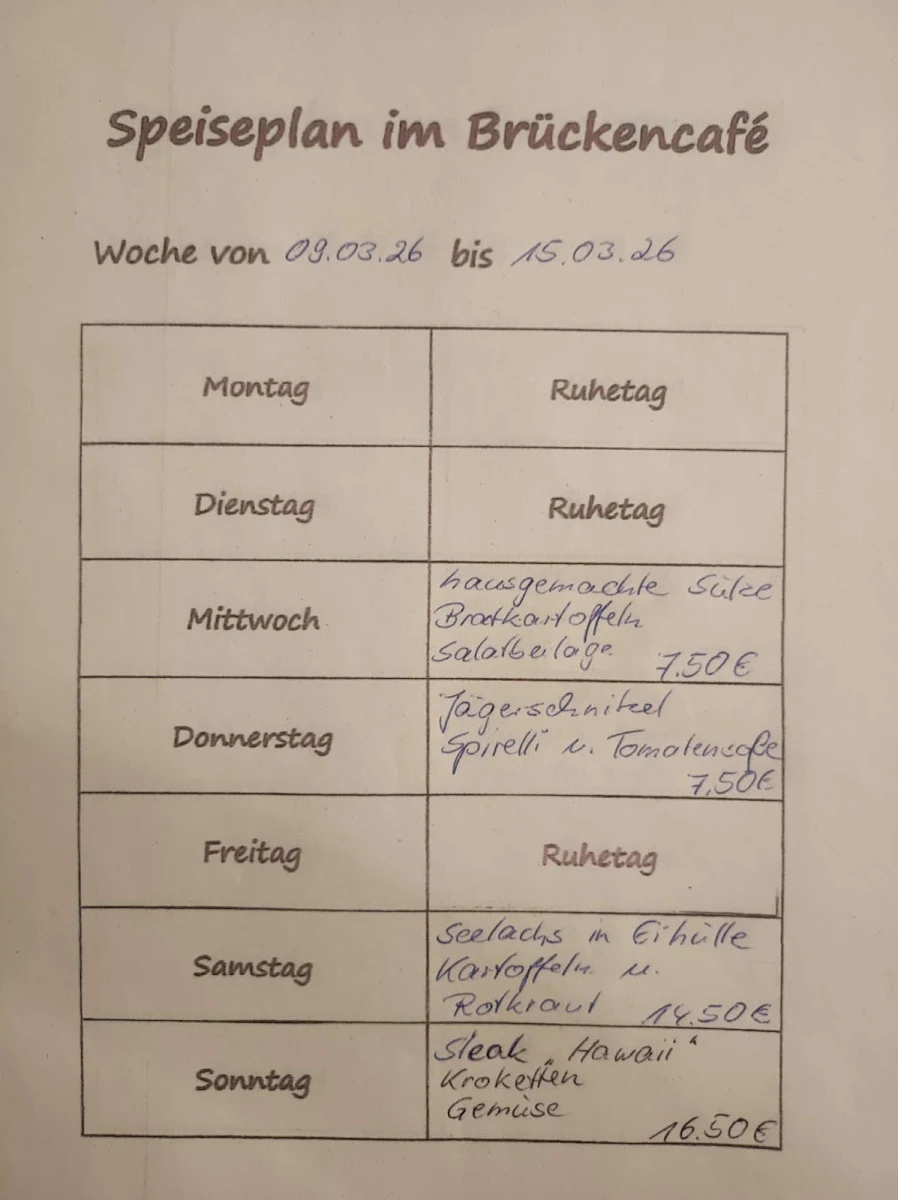 Speiseplan im Brückencafé
Woche von 09.03.26 bis 15.03.26
Montag
Ruhetag
Dienstag
Ruhetag
Mittwoch
hausgemachte Sülze
Bratkartoffeln
Salatbeilage 7.50€
Donnerstag
Jägerschnitzel
Spirelli u. Tomatensoße
7,50€
Freitag
Ruhetag
Samstag
Seelachs in Eihülle
Kartoffeln u.
Rotkraut 14.50€
Sonntag
Steak „Hawaii“
Kroketten
Gemüse
16.50€